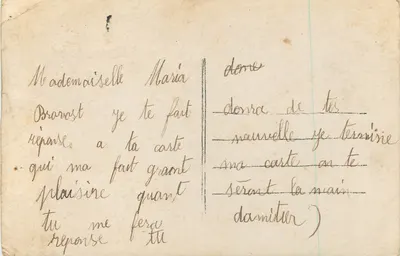 Mademoiselle Maria
Branost je te fait
réponse a ta carte
qui ma fait graont
plaisire quant
tu me fera
reponse tu
done
donra de tes
nouvelle je terminie
ma carte on te
séront la main
damitier)